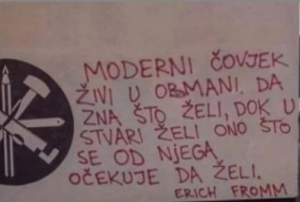 MODERNI ČOVJEK
ŽIVI U OBMANI, DA
ZNA ŠTO ŽELI, DOK U
STVARI ŽELI ONO ŠTO
SE OD NJEGA
OČEKUJE DA ŽELI.
ERICH FROMM